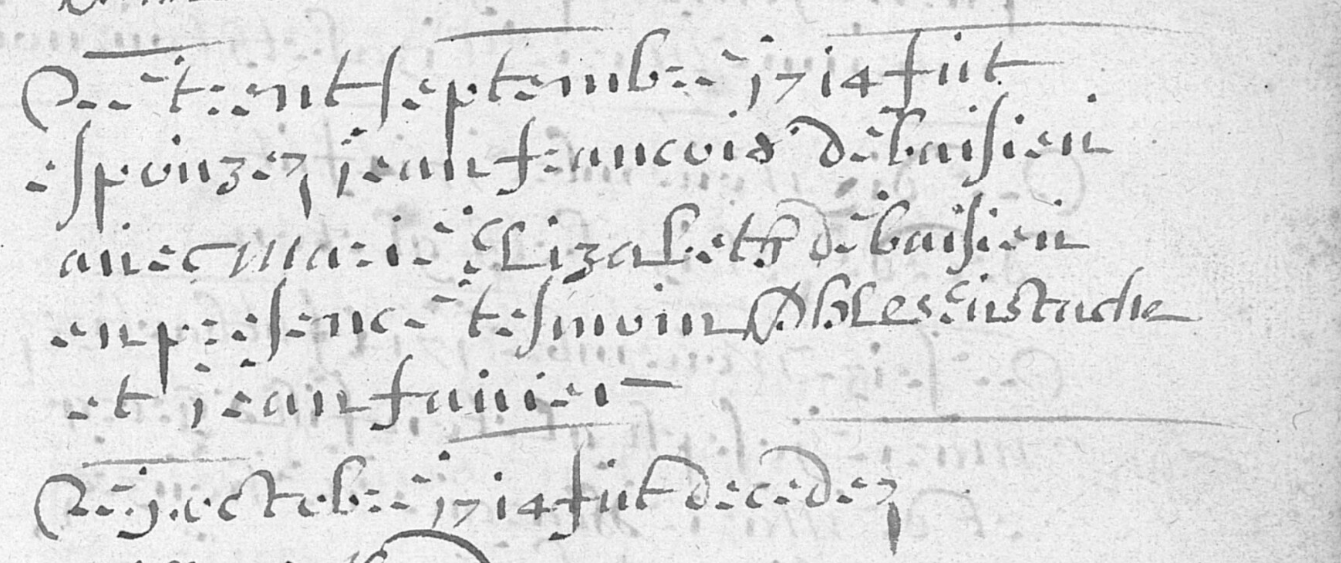 Le trent septembre 1714 fut
espouzez jean francois debaisieu
auec marie elizabeth debaisieu
en presence tesmoin Phles eustache
et jean fauuier
Le 9 octobre 1714 fut decedez